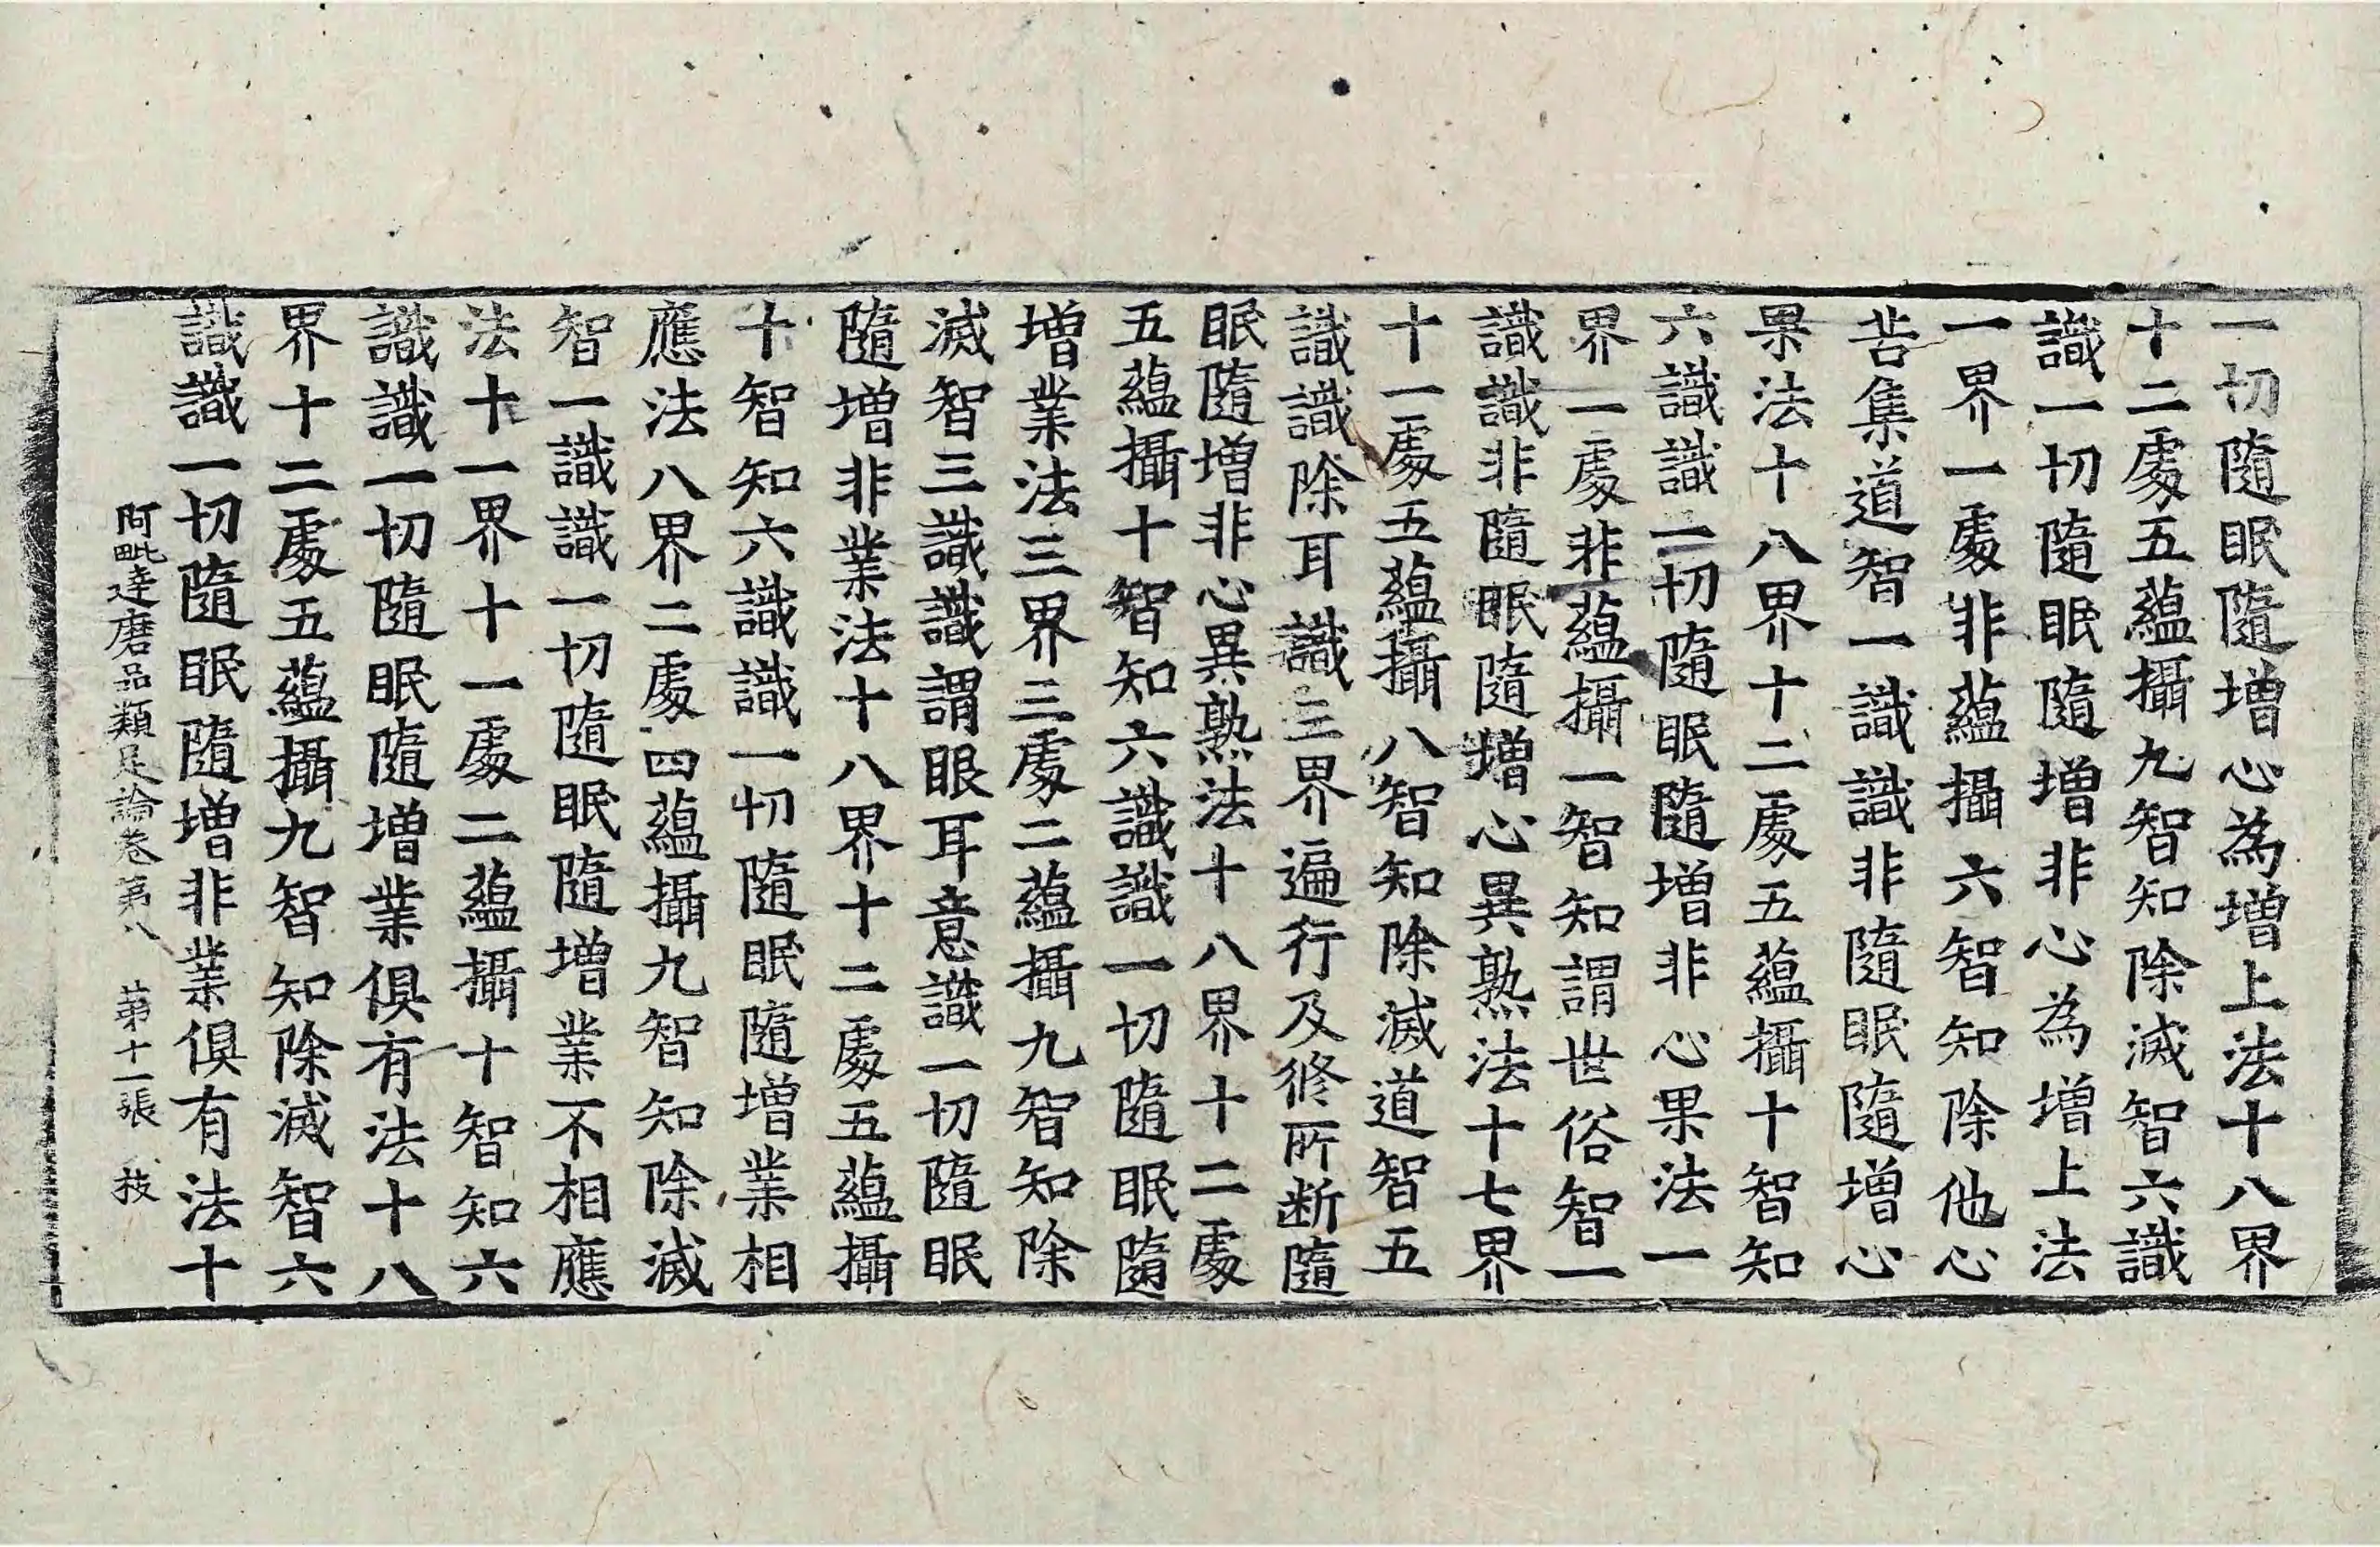 一切隨眠隨增心為增上法十八界
十二處五蘊攝九智知除滅智六識
識一切隨眠隨增非心為增上法
一界一處非蘊攝六智知除他心
苦集道智一識識非隨眠隨增心
果法十八界十二處五蘊攝十智知
六識識一切隨眠隨增非心果法一
界一處非蘊攝一智知謂世俗智一
識識非隨眠隨增心異熟法十七界
十一處五蘊攝八智知除滅道智五
識識除耳識三界遍行及修所斷隨
眠隨增非心異熟法十八界十二處
五蘊攝十智知六識識一切隨眠隨
增業法三界三處二蘊攝九智知除
滅智三識識謂眼耳意識一切隨眠
隨增非業法十八界十二處五蘊攝
十智知六識識一切隨眠隨增業相
應法八界二處四蘊攝九智知除滅
智一識識一切隨眠隨增業不相應
法十一界十一處二蘊攝十智知六
識識一切隨眠隨增業俱有法十八
界十二處五蘊攝九智知除滅智六
識識一切隨眠隨增非業俱有法十
阿毗達磨品類足論卷第八 第十一張 技